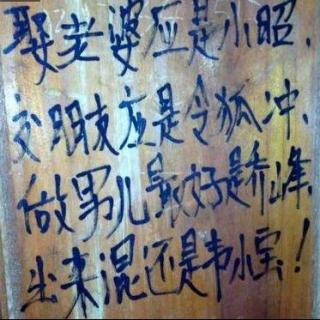 娶老婆应是小昭、
交朋友应是令狐冲、
做男儿最好是乔峰、
出来混还是韦小宝！